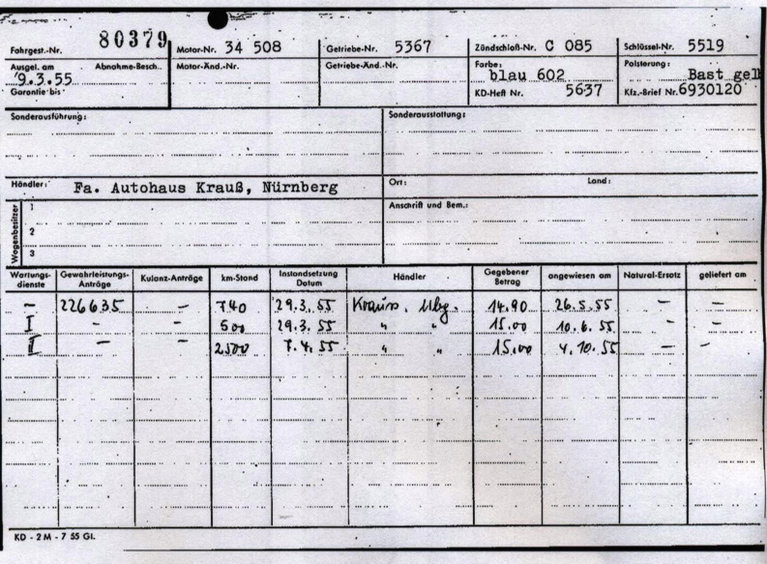 Fahrgest.-Nr. 80379 Motor-Nr. 34 508 Getriebe-Nr. 5367 Zündschloß-Nr. C 085 Schlüssel-Nr. 5519
Ausgel. am Abnahme-Besch. Motor-Änd.-Nr. Getriebe-Änd.-Nr. Farbe: Polsterung:
9.3.55 blau 602 Bast gelb
Garantie bis KD-Heft Nr. 5637 Kfz.-Brief Nr. 6930120
Sonderausführung: Sonderausstattung:
Händler: Fa. Autohaus Krauß, Nürnberg Ort: Land:
Wagenbesitzer
1 Anschrift und Bem.:
2
3
Wartungs- Gewährleistungs- Kulanz-Anträge km-Stand Instandsetzung Händler Gegebener angewiesen am Natural-Ersatz geliefert am
dienste Anträge Datum Betrag
— 226635 — 740 29.3.55 Krauss, Nbg. 14.90 26.5.55 — —
I — — 500 29.3.55 " " 15.00 10.6.55 — —
II — — 2500 7.4.55 " " 15.00 4.10.55 — —
KD - 2 M - 7 55 Gl.